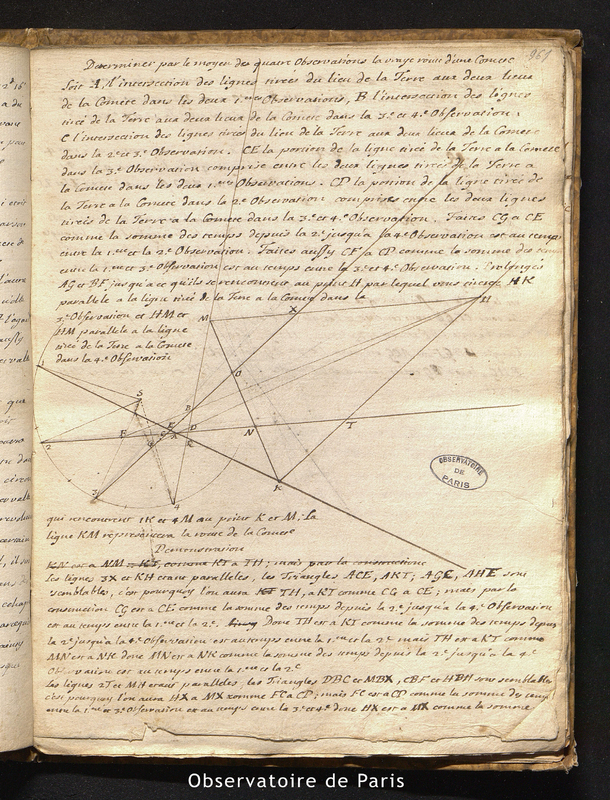 961
Determiner par le moyen des quatre Observations la vraye route d'une Comete
Soit A, l'intersection des lignes tirées du lieu de la Terre aux deux lieux
de la Comete dans les deux 1.res Observations, B l'intersection des lignes
tiré de la Terre aux deux lieux de la Comete dans la 3.e et 4.e Observation,
C l'intersection des lignes tirés du lieu de la Terre aux deux lieux de la Comete
dans la 2.e et 3.e Observation. CE la portion de la ligne tiré de la Terre a la Comete
dans la 3.e Observation comprise entre les deux lignes tirées de la Terre a
la Comete dans les deux 1.res Observations. CD la portion de la ligne tiré de
la Terre a la Comete dans la 2.e Observation comprises entre les deux lignes
tirées de la Terre a la Comete dans la 3.e et 4.e Observation. Faites CG a CE
comme la somme des temps depuis la 2.e jusqu'a la 4.e Observation est au temps
entre la 1.re et la 2.e Observation. Faites aussy CF a CD comme la somme des tems
entre la 1.re et 3.e Observation est au temps entre la 3.e et 4.e Observation. Prolongés
AG et BF jusqu'a ce qu'ils se rencontrent au point H par lequel vous tirerés HK
parallele a la ligne tiré de la Terre a la Comete dans la
3.e Observation et HM
HM parallele a la ligne
tirée de la Terre a la Comete
dans la 4.e Observation
M
X
H
O
S
B
F
E
D
G
C
A
R
N
T
K
1
2
3
4
OBSERVATOIRE
DE
PARIS
qui rencontrent 1K et 4M au point K et M, la
ligne KM representera la route de la Comete
Demonstration
KN est a NM comme KT a TH; mais par la construction
les lignes 3X et KH etant paralleles, les Triangles ACE, AKT; AGC, AHT sont
semblables, c'est pourquoy l'on aura TH, a KT comme CG a CE; mais par la
construction CG est a CE comme la somme des temps depuis la 2.e jusqu'a la 4.e Observation
est au temps entre la 1.re et la 2.e. Donc TH est a KT comme la somme des temps depuis
la 2.e jusqu'a la 4.e Observation est au temps entre la 1.re et la 2.e mais TH est a KT comme
MN est a NK donc MN est a NK comme la somme des temps depuis la 2.e jusqu'a la 4.e
Observation est au temps entre la 1.re et la 2.e
les lignes 2T et MH etant paralleles, les Triangles DBC et MBX, CBF et HBH sont semblables
c'est pourquoy l'on aura HX a MX comme FC a CD; mais FC est a CD comme la somme du temps
entre la 1.re et 3.e Observation est au temps entre la 3.e et 4.e donc HX est a MX comme la somme
Observatoire de Paris